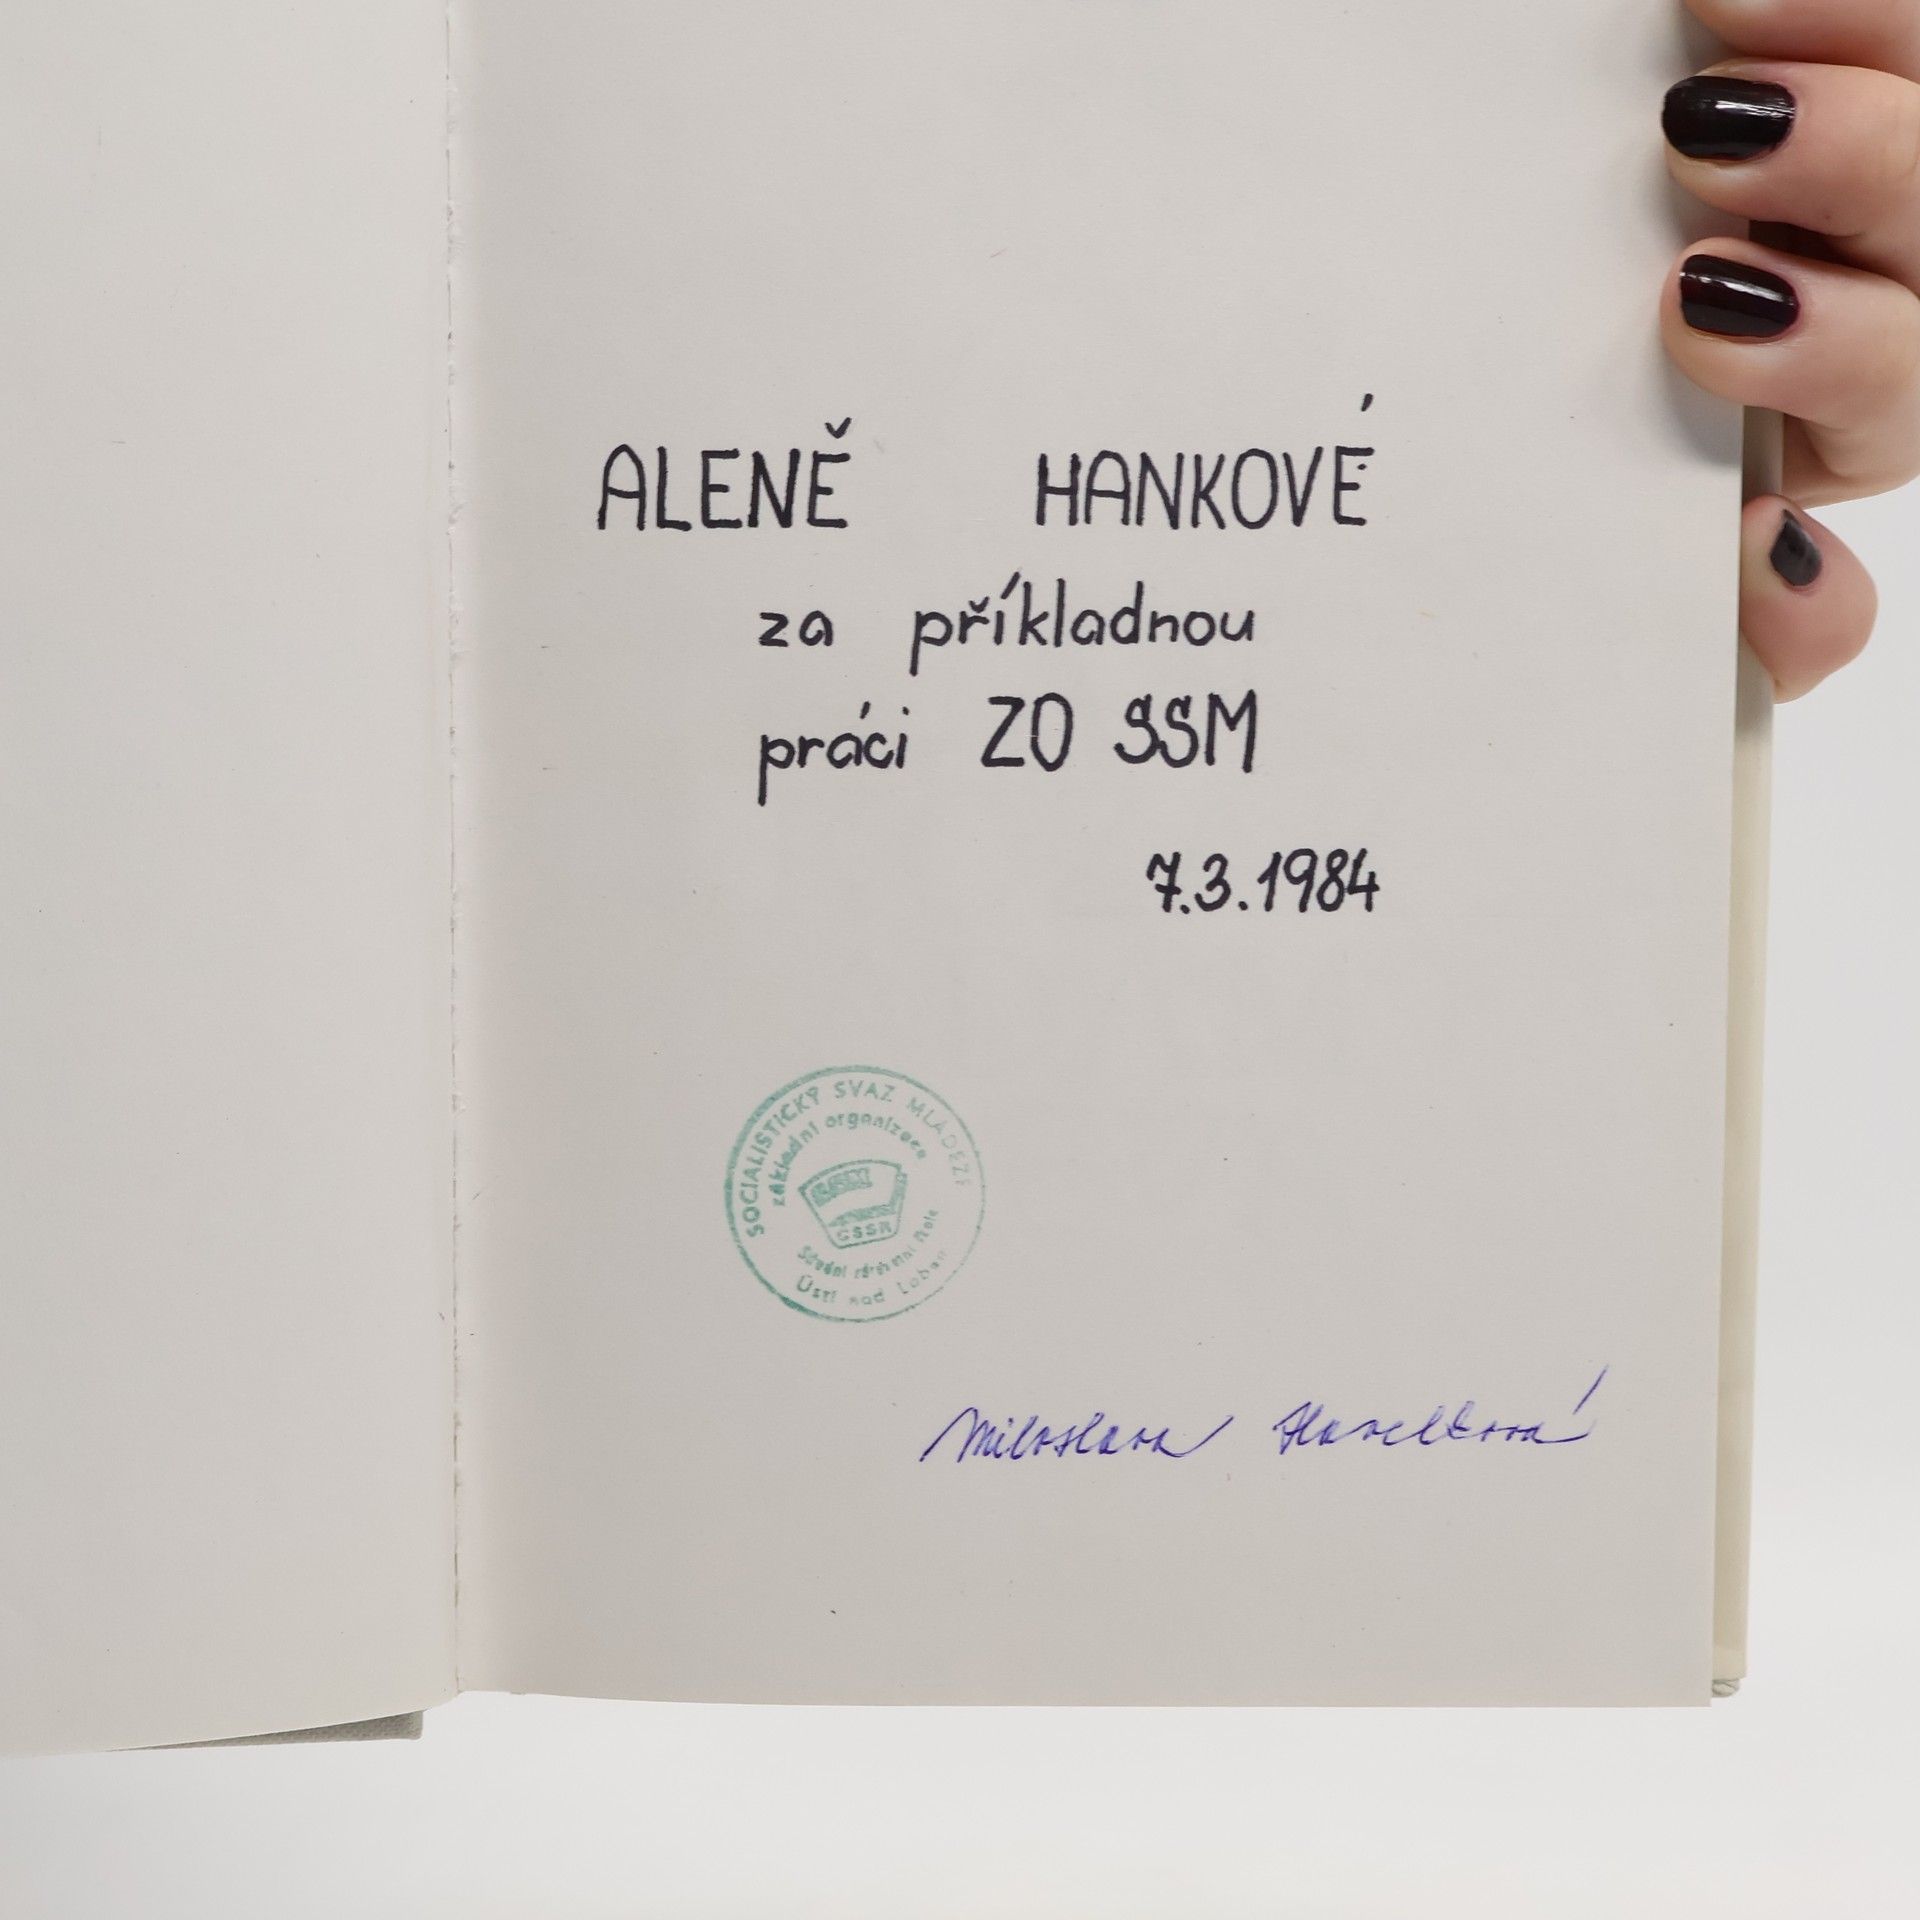 ALENĚ HANKOVÉ
za příkladnou
práci ZO SSM
7.3.1984
SOCIALISTICKÝ SVAZ MLÁDEŽE
základní organizace
SSM
ČSSR
Střední zdravotní škole
Ústí nad Labem
Miloslava Havelková